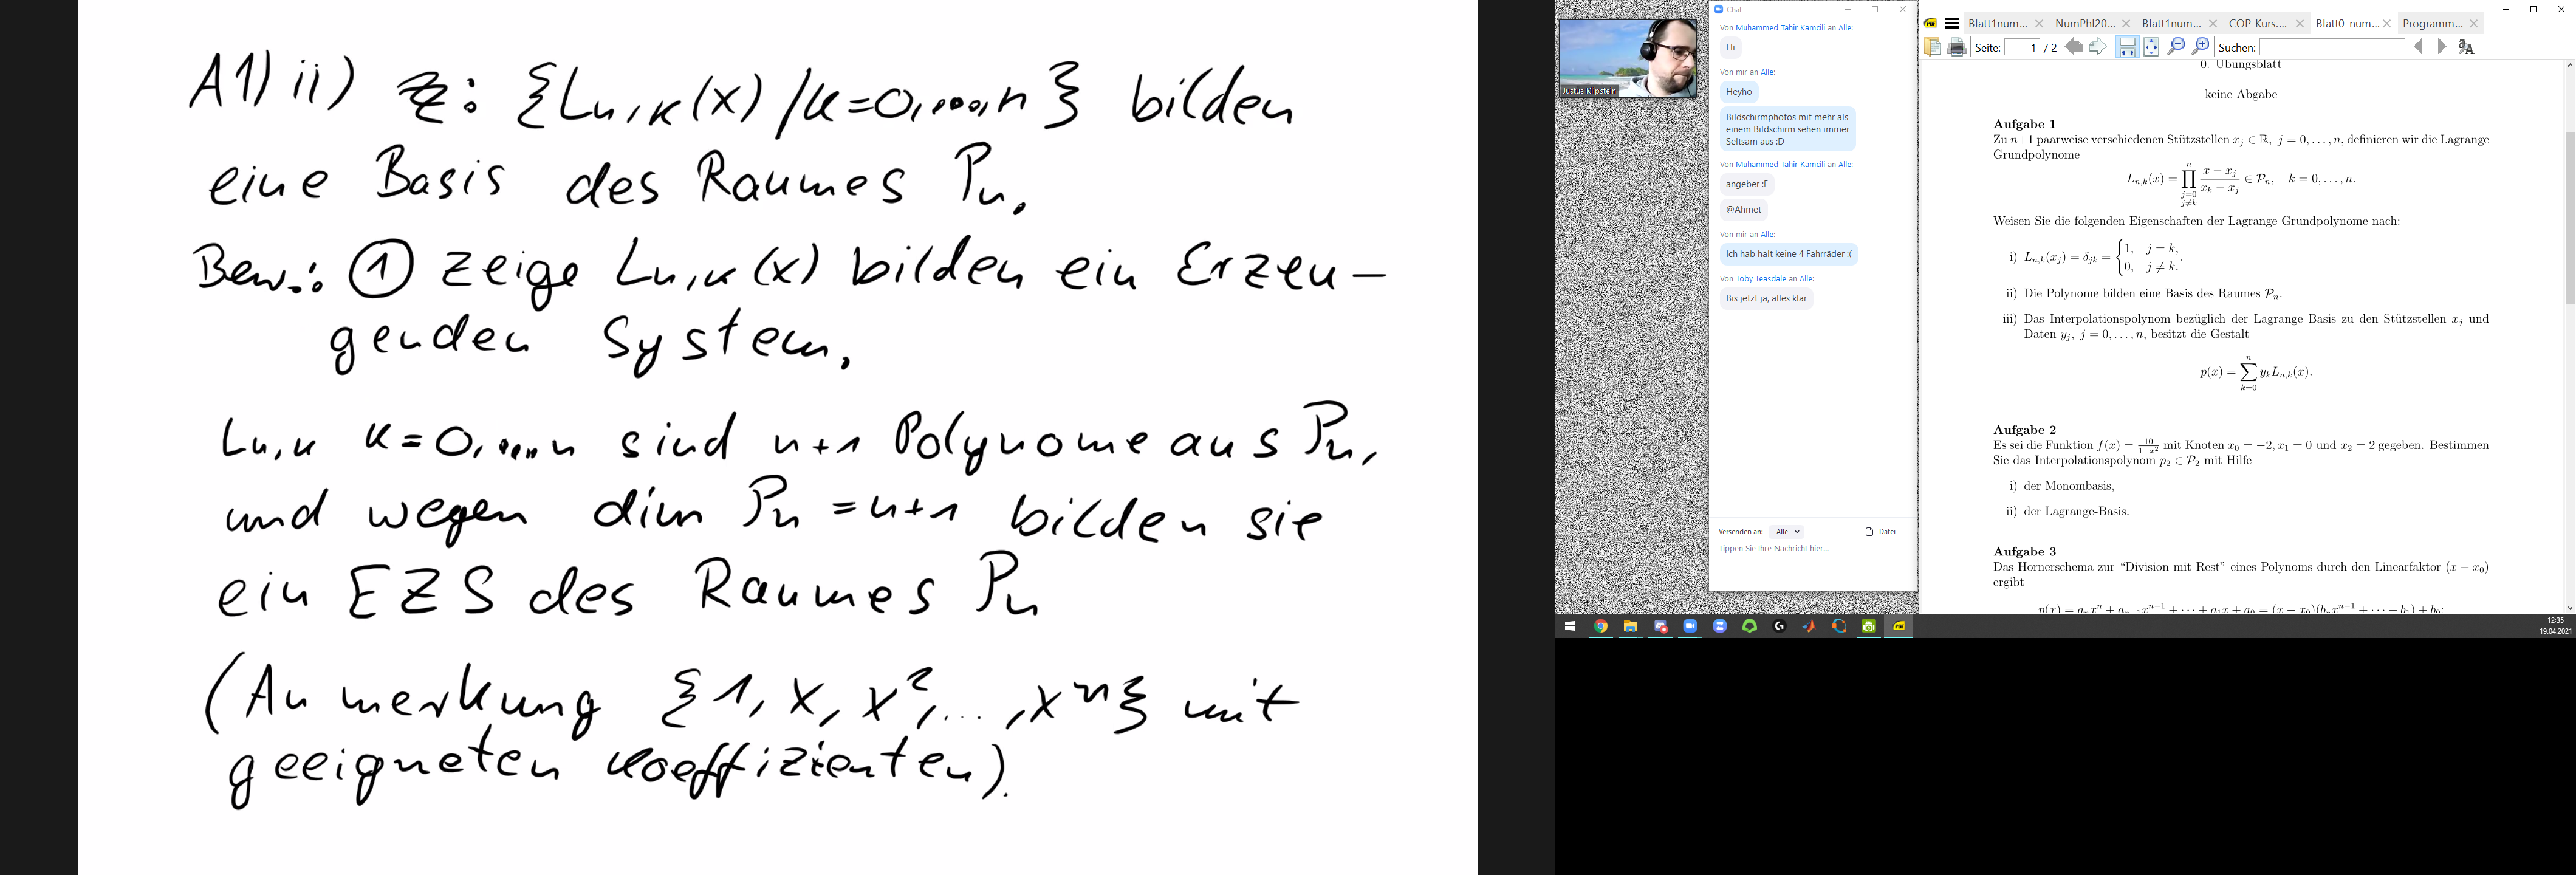 A1) ii) z: {Ln,k(x) / k=0,...,n } bilden
eine Basis des Raumes Pn.
Bew.: ① zeige Ln,k(x) bilden ein Erzeu-
genden System.
Ln,k k=0,...,n sind n+1 Polynome aus Pn,
und wegen dim Pn = n+1 bilden sie
ein EZS des Raumes Pn
(Anmerkung {1, x, x², ..., xⁿ} mit
geeigneten Koeffizienten).
Justus Klipstein
Chat
Von Muhammed Tahir Kamcili an Alle:
Hi
Von mir an Alle:
Heyho
Bildschirmphotos mit mehr als
einem Bildschirm sehen immer
Seltsam aus :D
Von Muhammed Tahir Kamcili an Alle:
angeber :F
@Ahmet
Von mir an Alle:
Ich hab halt keine 4 Fahrräder :(
Von Toby Teasdale an Alle:
Bis jetzt ja, alles klar
Versenden an: Alle Datei
Tippen Sie Ihre Nachricht hier...
Blatt1num... NumPhI20... Blatt1num... COP-Kurs.... Blatt0_num... Programm...
Seite: 1 / 2 Suchen:
0. Übungsblatt
keine Abgabe
Aufgabe 1
Zu n+1 paarweise verschiedenen Stützstellen xj ∈ ℝ, j = 0, . . . , n, definieren wir die Lagrange
Grundpolynome
Ln,k(x) = ∏ (j=0, j≠k)^n (x − xj)/(xk − xj) ∈ Pn, k = 0, . . . , n.
Weisen Sie die folgenden Eigenschaften der Lagrange Grundpolynome nach:
i) Ln,k(xj) = δjk = { 1, j = k,
0, j ≠ k. .
ii) Die Polynome bilden eine Basis des Raumes Pn.
iii) Das Interpolationspolynom bezüglich der Lagrange Basis zu den Stützstellen xj und
Daten yj, j = 0, . . . , n, besitzt die Gestalt
p(x) = ∑ (k=0)^n yk Ln,k(x).
Aufgabe 2
Es sei die Funktion f(x) = 10/(1+x²) mit Knoten x0 = −2, x1 = 0 und x2 = 2 gegeben. Bestimmen
Sie das Interpolationspolynom p2 ∈ P2 mit Hilfe
i) der Monombasis,
ii) der Lagrange-Basis.
Aufgabe 3
Das Hornerschema zur “Division mit Rest” eines Polynoms durch den Linearfaktor (x − x0)
ergibt
p(x) = anxⁿ + an−1xⁿ⁻¹ + · · · + a1x + a0 = (x − x0)(bnxⁿ⁻¹ + · · · + b1) + b0;
12:35
19.04.2021